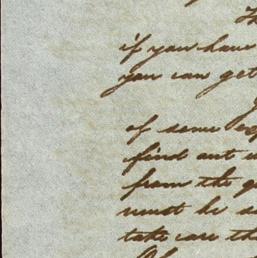 Th
if you have
you can get
of some exp
find out w
from the g
must be se
take care th